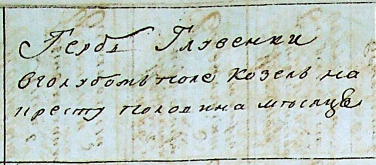 Гербъ Глявенки
в голубомъ поле козелъ на
кресту половина месяца